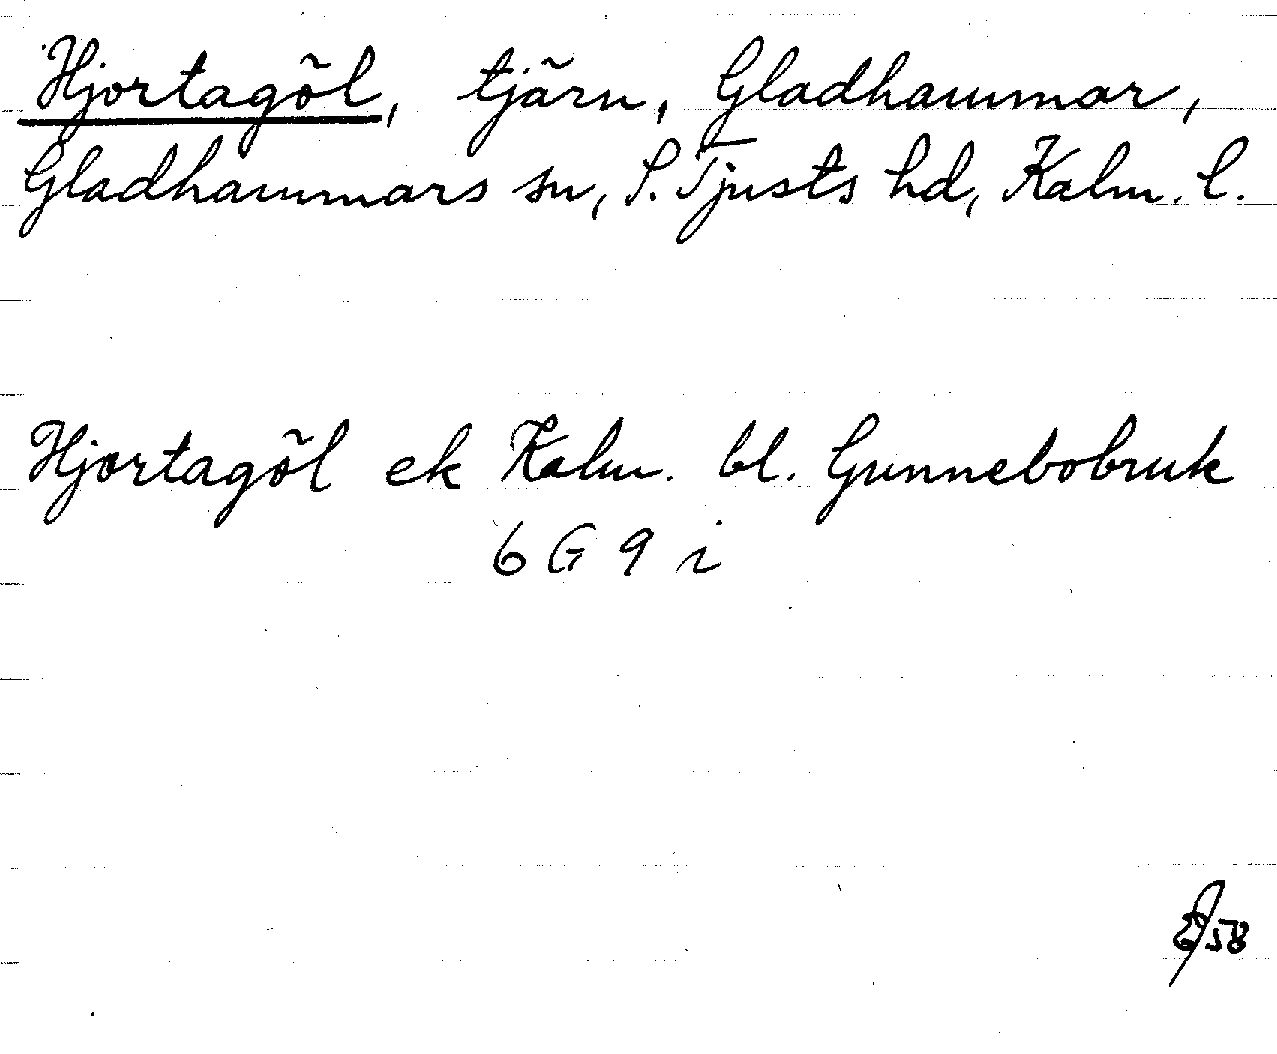 Hjortagöl, tjärn, Gladhammar,
Gladhammars sn, S. Tjusts hd, Kalm. l.
Hjortagöl ek Kalm. bl. Gunnebobruk
6 G 9 i
58